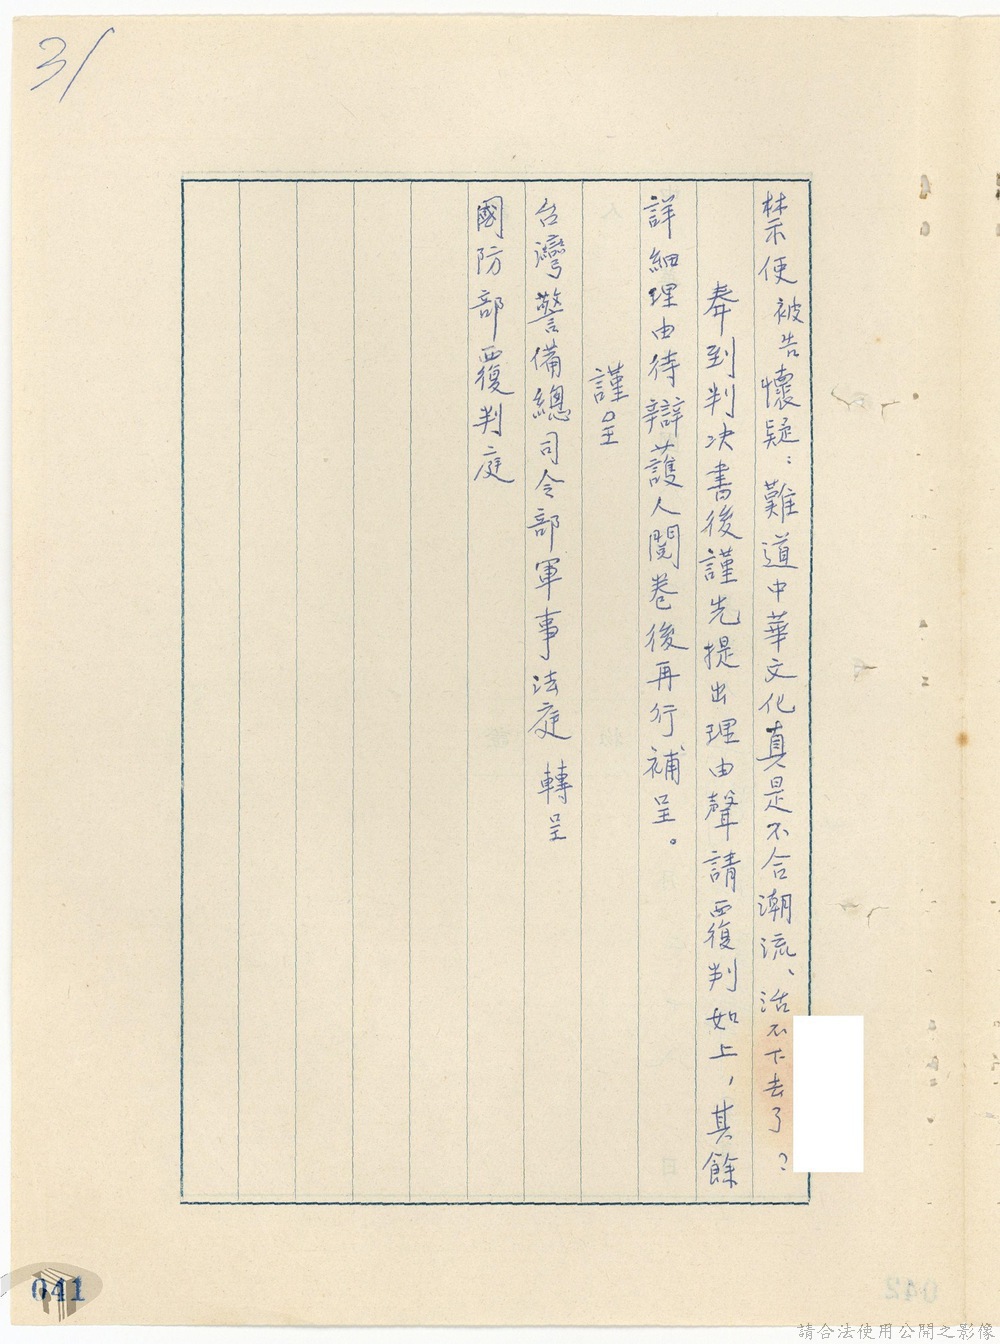 31
禁使被告懷疑：難道中華文化真是不合潮流、活不下去了？
奉到判決書後謹先提出理由聲請覆判如上，其餘
詳細理由待辯護人閱卷後再行補呈。
謹呈
台灣警備總司令部軍事法庭 轉呈
國防部覆判庭
041
請合法使用公開之影像